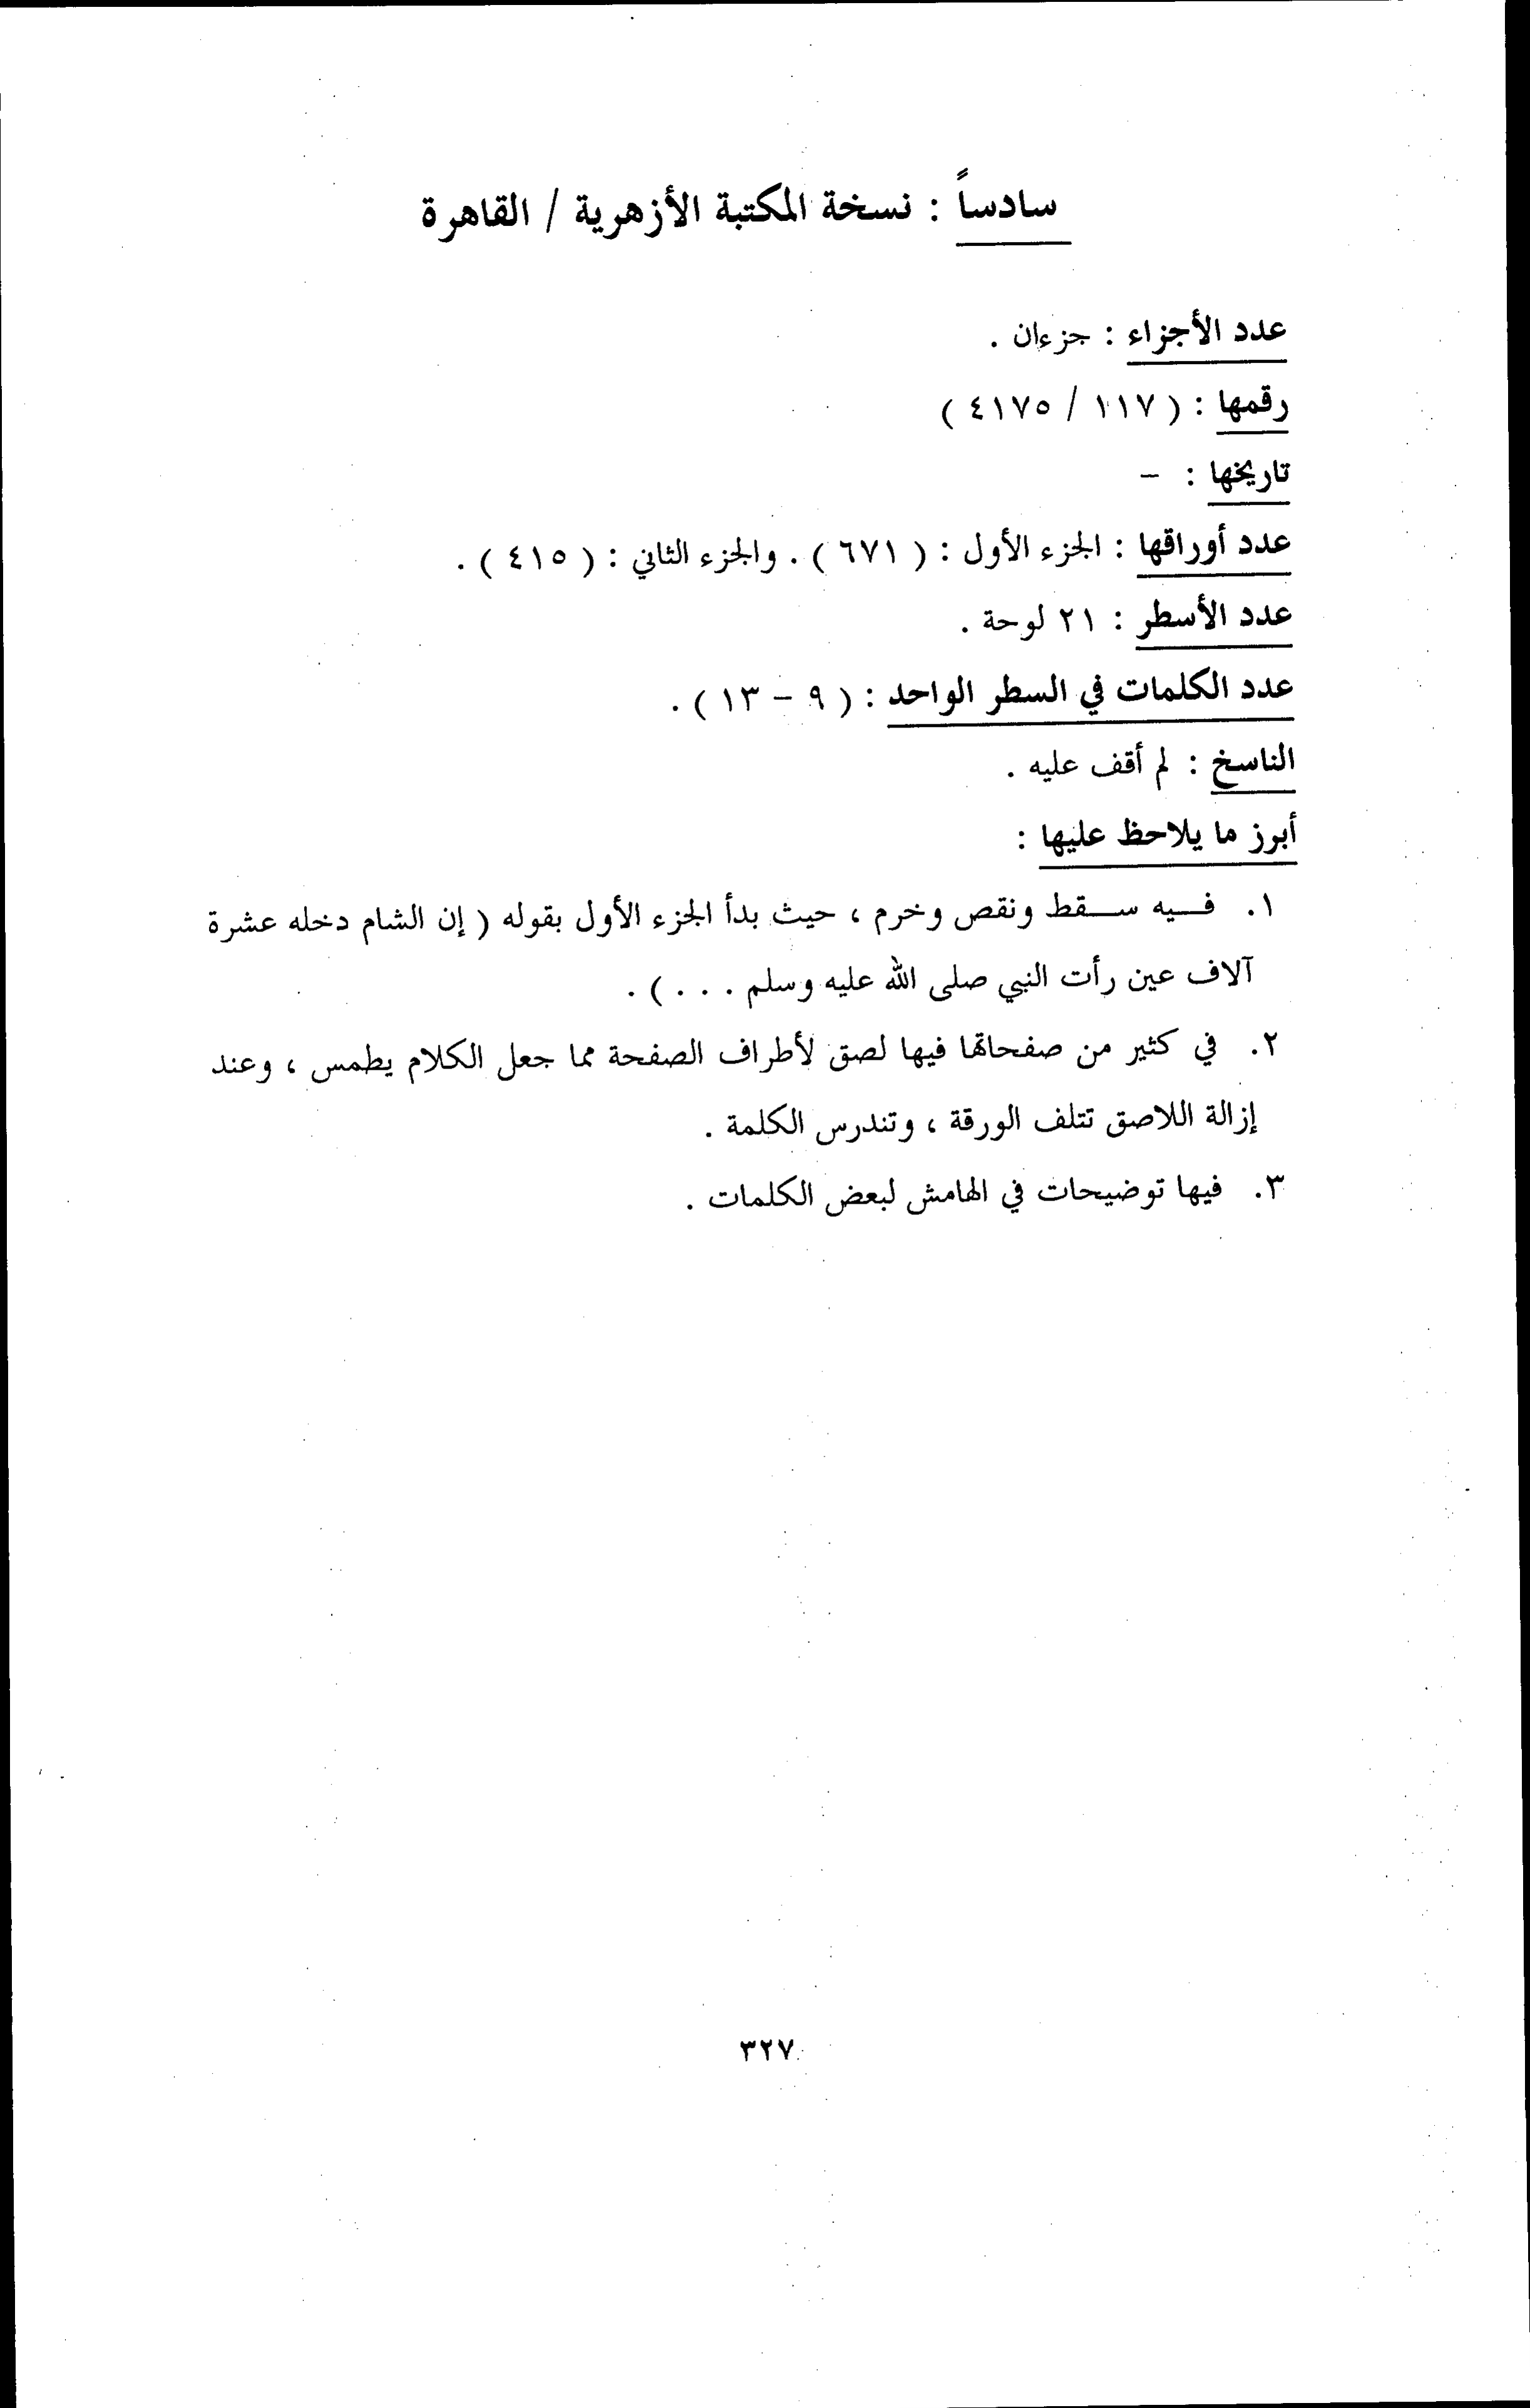 سادساً : نسخة المكتبة الأزهرية / القاهرة
عدد الأجزاء : جزءان .
رقمها : ( ١١٧ / ٤١٧٥ )
تاريخها : –
عدد أوراقها : الجزء الأول : ( ٦٧١ ) . والجزء الثاني : ( ٤١٥ ) .
عدد الأسطر : ٢١ لوحة .
عدد الكلمات في السطر الواحد : ( ٩ – ١٣ ) .
الناسخ : لم أقف عليه .
أبرز ما يلاحظ عليها :
١. فــيه ســقط ونقص وخرم ، حيث بدأ الجزء الأول بقوله ( إن الشام دخله عشرة
آلاف عين رأت النبي صلى الله عليه وسلم . . . ) .
٢. في كثير من صفحاتها فيها لصق لأطراف الصفحة مما جعل الكلام يطمس ، وعند
إزالة اللاصق تتلف الورقة ، وتندرس الكلمة .
٣. فيها توضيحات في الهامش لبعض الكلمات .
٣٢٧